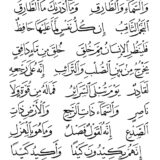 وَالسَّمَاءِ وَالطَّارِقِ وَمَا أَدْرَىٰكَ مَا الطَّارِقُ
النَّجْمُ الثَّاقِبُ إِن كُلُّ نَفْسٍ لَّمَّا عَلَيْهَا حَافِظٌ
فَلْيَنظُرِ الْإِنسَانُ مِمَّ خُلِقَ خُلِقَ مِن مَّاءٍ دَافِقٍ
يَخْرُجُ مِن بَيْنِ الصُّلْبِ وَالتَّرَائِبِ إِنَّهُ عَلَىٰ رَجْعِهِ
لَقَادِرٌ يَوْمَ تُبْلَى السَّرَائِرُ فَمَا لَهُ مِن قُوَّةٍ وَلَا
نَاصِرٍ وَالسَّمَاءِ ذَاتِ الرَّجْعِ وَالْأَرْضِ ذَاتِ
الصَّدْعِ إِنَّهُ لَقَوْلٌ فَصْلٌ وَمَا هُوَ بِالْهَزْلِ
إِنَّهُمْ يَكِيدُونَ كَيْدًا وَأَكِيدُ كَيْدًا